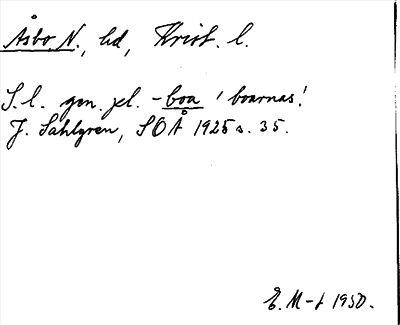 Åsbo N., hd, Krist. l.
S. l. gen. pl. -boa 'boarnas'.
J. Sahlgren, SOÅ 1925 s. 35.
E. M-t 1930.